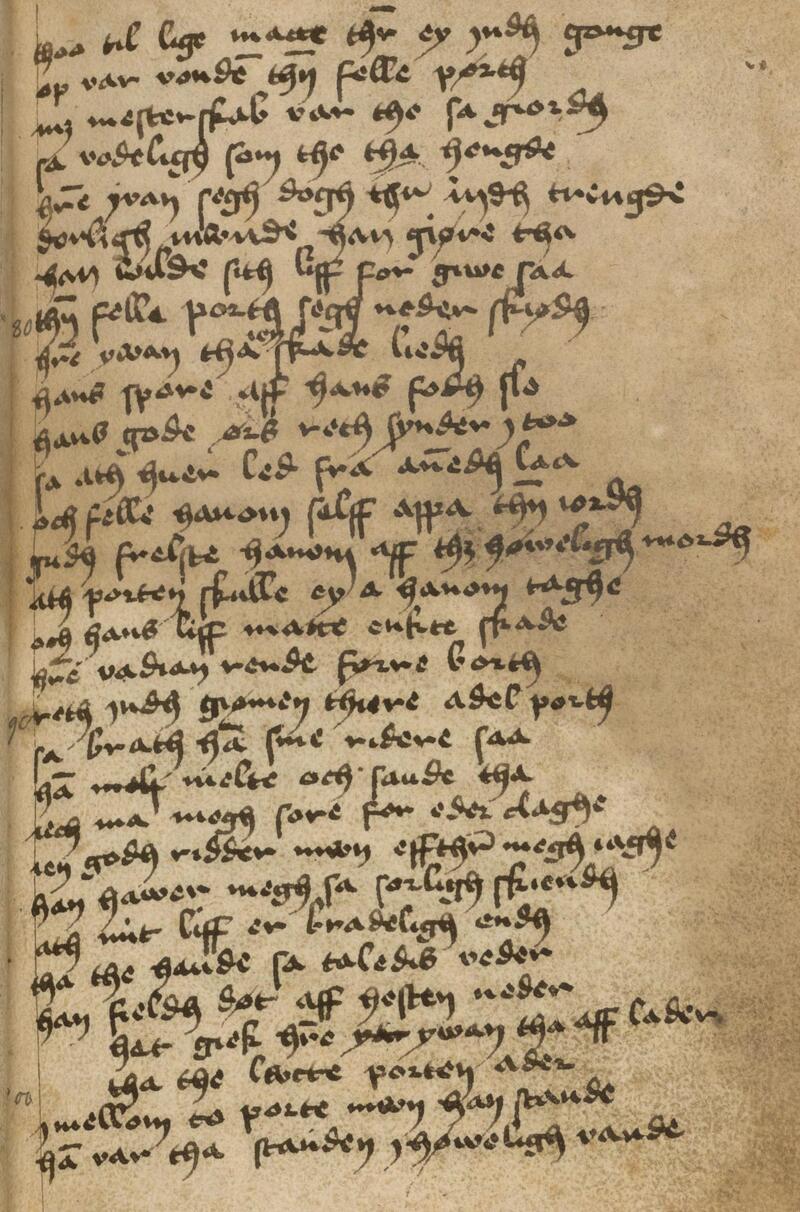 thoo til lige matte thr̄ ey jndh gonge
op var vondē thn̄ felle porth
mz mesterskab var the sa giordh
sa vodeligh som the tha hengde
hr̄e yvan segh dogh thr̄ indh trengde
dorligh mwnde han giøre tha
han wilde sith liff for giwe saa
80 thn̄ felle porth segh neder skiødh
hr̄e ywan tha ien skade liedh
hans spore aff hans fodh slo
hans gode ørs reth synder j too
sa ath huer led fra an̄edh laa
och felle hanom selff appa thn̄ iordh
gudh frelste hanom aff thz høweligh mordh
ath porten skulle ey a hanom taghe
och hans liff matte enkte skade
hr̄e vadian rende førre borth
90 reth jndh giømen thiere adel porth
sa brath hā sine ridere saa
hā melte och saude tha
iech ma megh sore for eder claghe
ien godh ridder mwn effthr̄ megh iaghe
han hawer megh sa sorligh skiendh
ath mit liff er bradeligh endh
tha the haude sa taledis veder
han fieldh døt aff hesten neder
het giek hr̄e ywan tha aff lader
tha the lwcte porten ader
00 jmellom to porte mwn han stande
hā var tha standen j høweligh vande